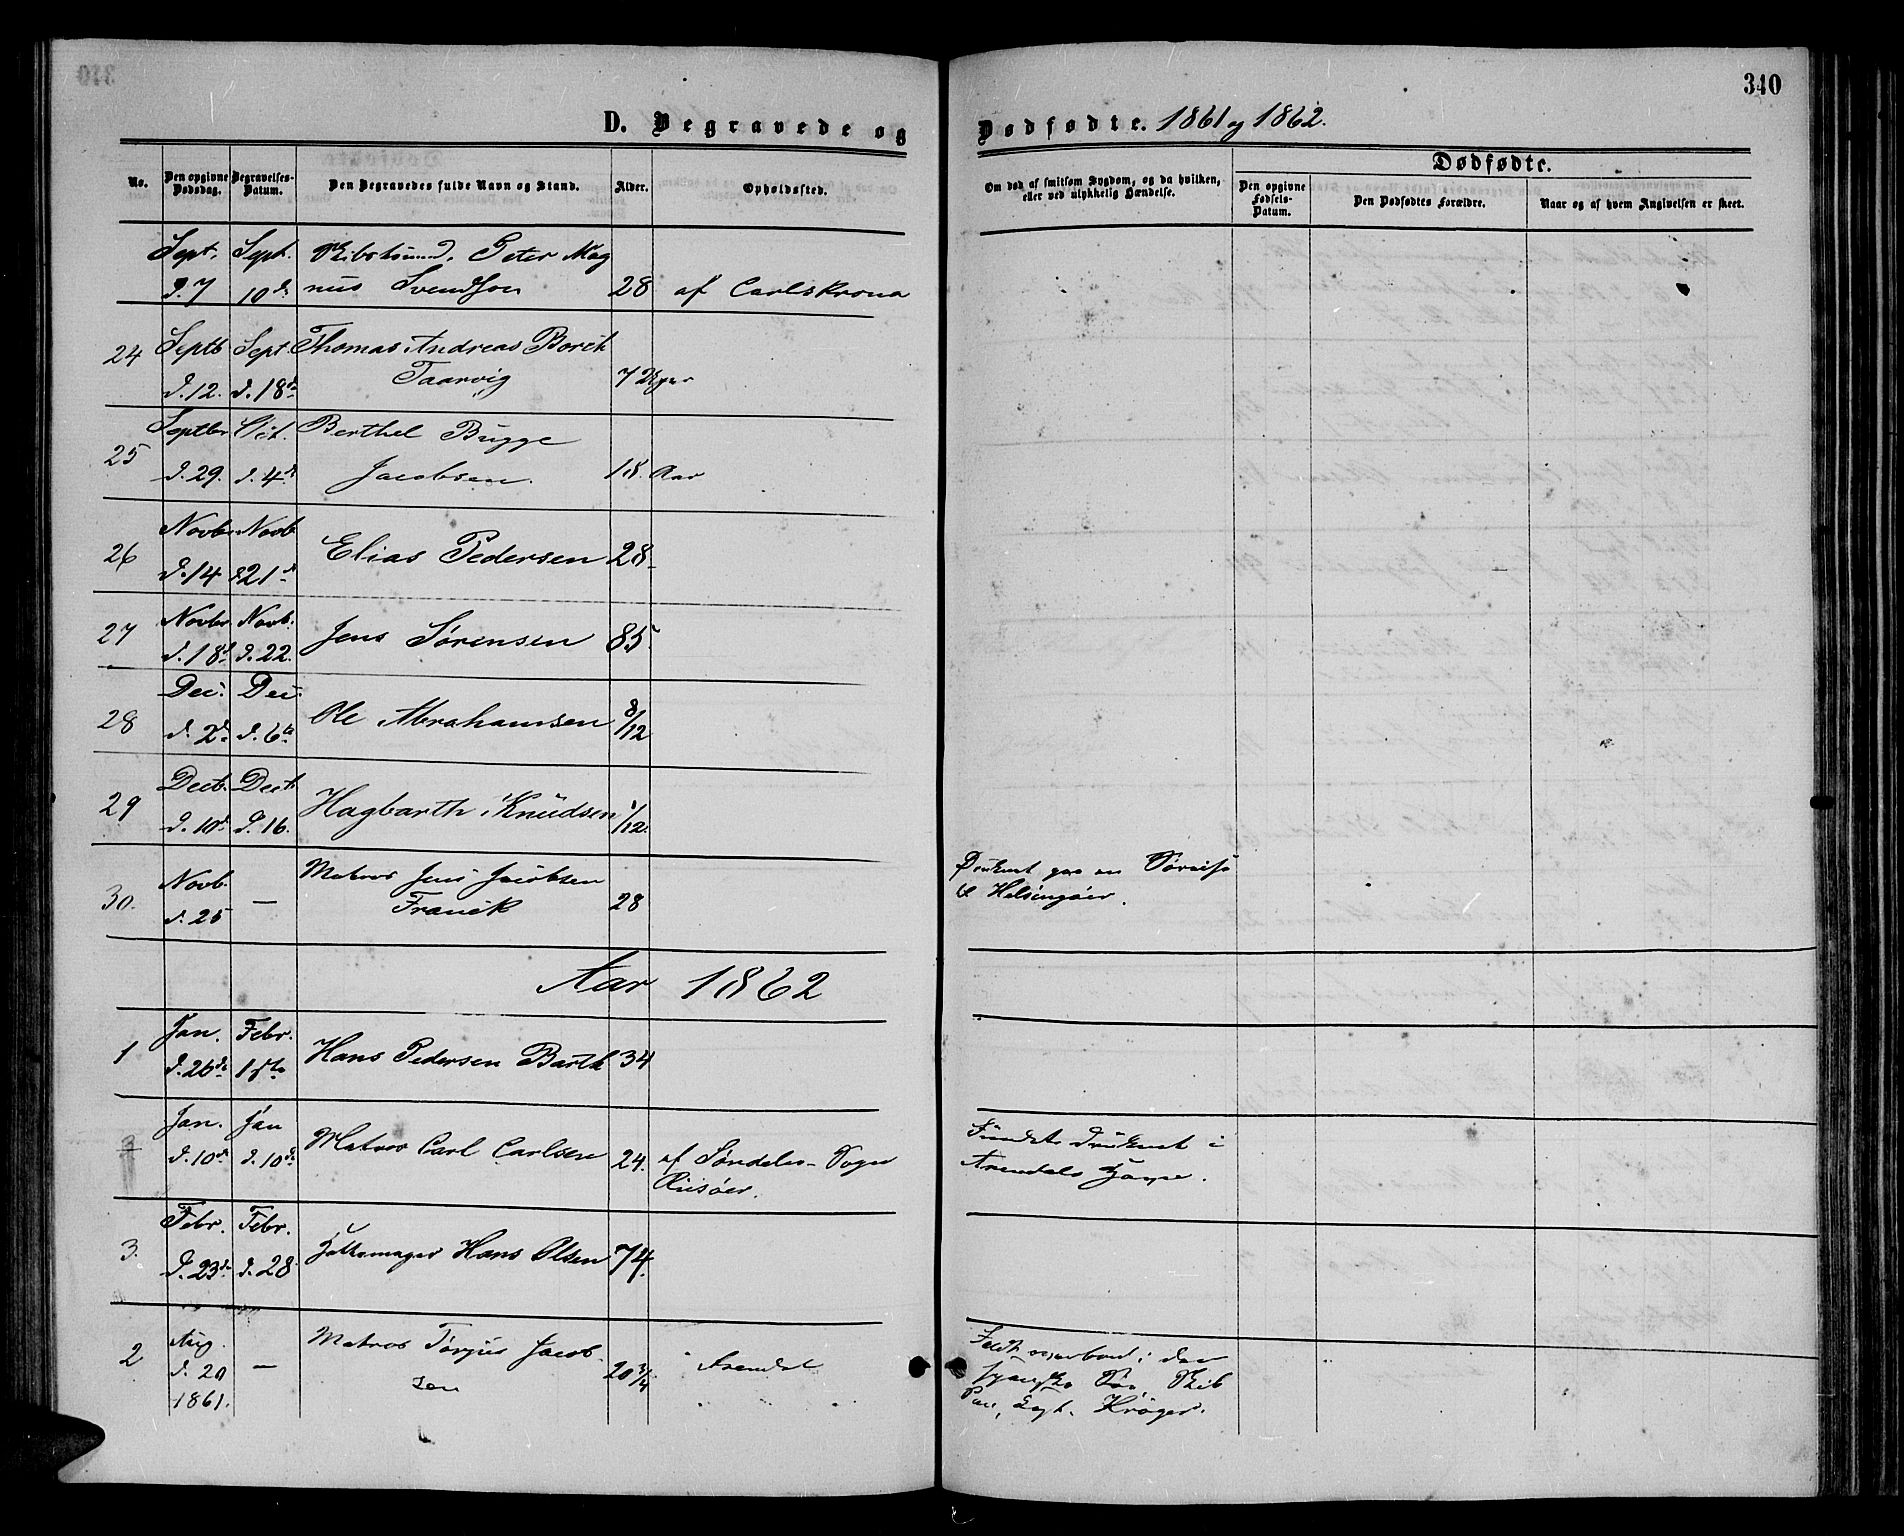 340
D. Begravede og Dødfødte. 1861 og 1862.
No.
Den opgivne Dødsdag.
Begravelses-Datum.
Den Begravedes fulde Navn og Stand.
Alder.
Opholdssted.
Om død af smitsom Sygdom, og da hvilken, eller ved ulykkelig Hændelse.
Dødfødte.
Den opgivne Fødsels-Datum.
Den Dødfødtes Forældre.
Naar og af hvem Angivelsen er skeet.
Sept. Sept. Peter Mag
d. 7 10de nus Svendsen 28 af Carlskrona
24 Septb Sept. Thomas Andreas Borch
d. 12. d. 18de Taarvig 7 Uger
25 Septbr Oct. Berthel Bugge
d. 29. d. 4de Jacobsen. 18 Aar
26 Novb. Novb Elias Pedersen 28
d. 14 d 21de
27 Novbr. Novb. Jens Sørensen 85
d. 18de d. 22.
28 Dec. Dec. Ole Abrahamsen 8/12
d. 2de d. 6te
29 Decb. Decb. Hagbarth Knudsen 1/12.
d. 10de d. 16.
30. Novb. — Matros Jens Jacobsen
d. 25 Franck 28
Druknet paa en Søreise
Helsingøer.
Aar 1862
1 Jan. Febr. Hans Pedersen Barth 34
d. 26de 1ste
Jan. Jan Matros Carl Carlsen 24. af Søndeløs Sogn
d. 10de d. 10de Riisøer.
Fundet druknet i
Arendals Havn.
3. Febr. Febr. Hans Olsen 74.
d. 23de d. 28
2 Aug. — Matros Torjus Jacob
d. 20 sen 20 3/4 Arendal
1861.
Faldt overbord i den
Skib
Capt. Krøger.